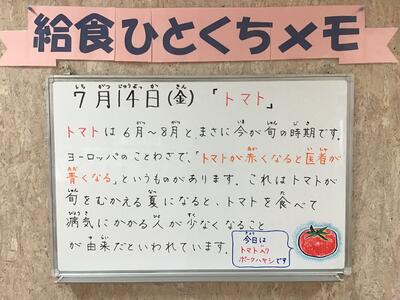 給食ひとくちメモ
7月14日(金) 「トマト」
トマトは6月〜8月と、まさに今が旬の時期です。
ヨーロッパのことわざで、「トマトが赤くなると医者が
青くなる」というものがあります。これはトマトが
旬をむかえる夏になると、トマトを食べて
病気にかかる人が少なくなること
が由来だといわれています。
今日は
トマト入り
ポークハヤシです